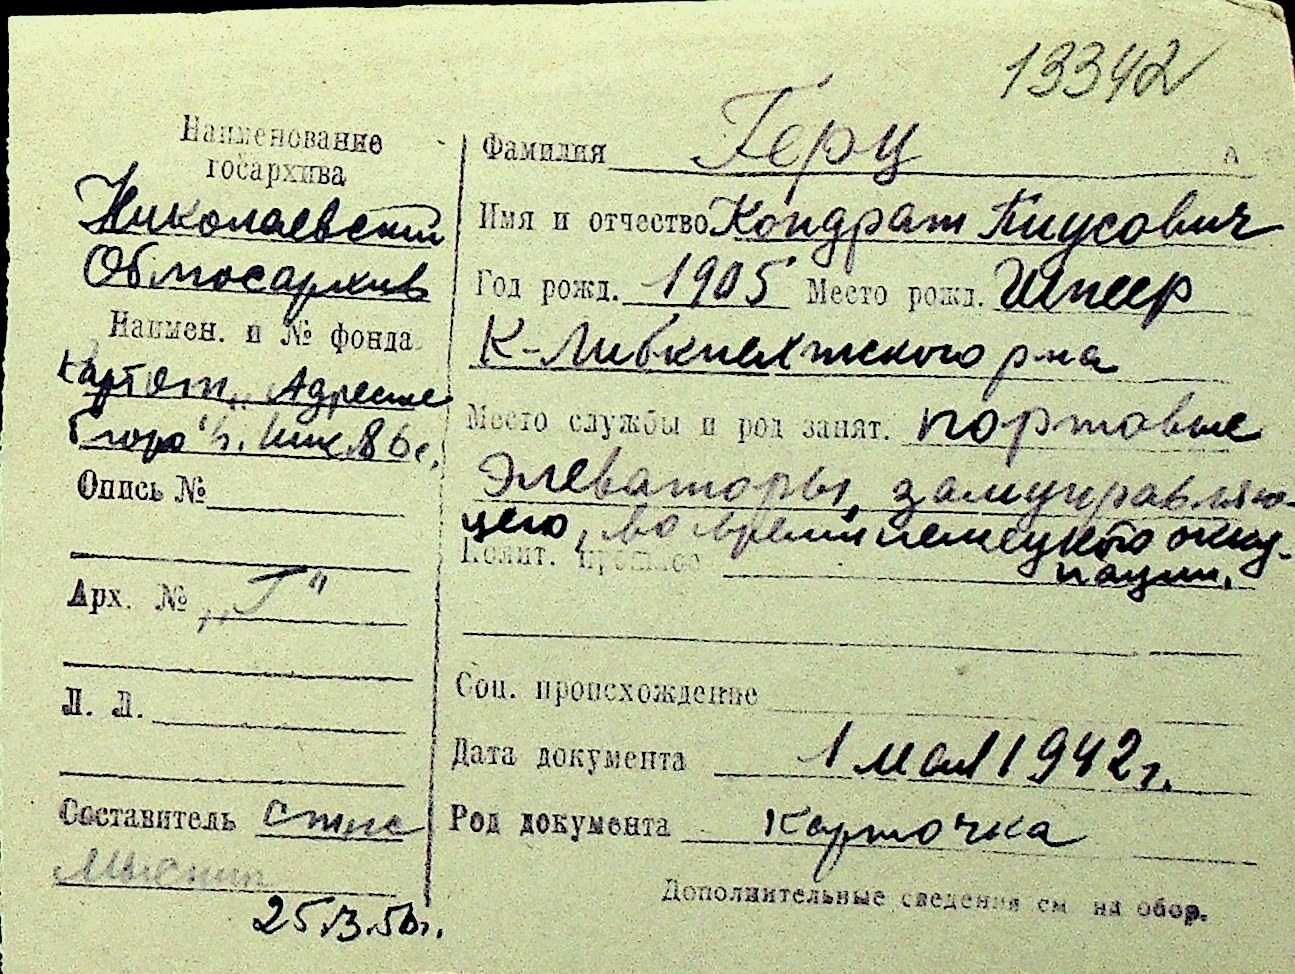 13342
Наименование
госархива
Николаевский
Облгосархив
Наимен. и № фонда
Картот. „Адресное
Опись №
Арх. № „Г"
Л. Л.
Составитель
25. 50г.
Фамилия Герц
Имя и отчество Кондрат Пиусович
Год рожд. 1905 Место рожд. Шпеер
К-Либкнехтского р-на
Место службы и род занят. портовые
Элеваторы, замуправляю-
щего, во время немецкого окку-
Полит. прошлое пации.
Соц. происхождение
Дата документа 1 мая 1942г.
Род документа Карточка
Дополнительные сведения см на обор.